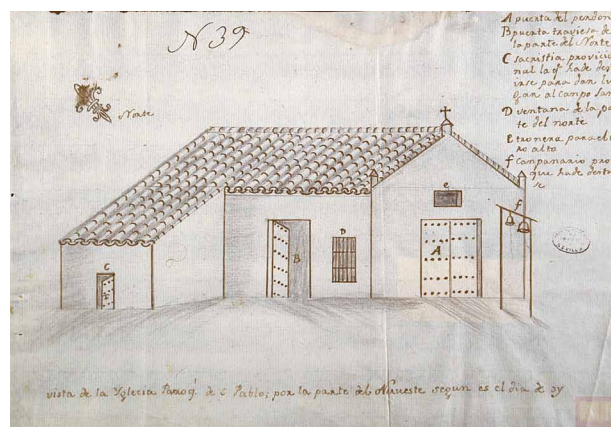 N 39
Norte
A puerta del perdon
B puerta traviesa de
la parte del Norte
C sacristia provicio
nal la qᵉ hade des
para dar lu
gar al campo San
D ventana de la pa
te del norte
E tronera para el
ro alto
f Canpanario pro
que hade
se
C
B
D
e
A
f
vista de la Yglecia Parroq.ˡ de S. Pablo; por la parte del Norueste segun es el dia de oy